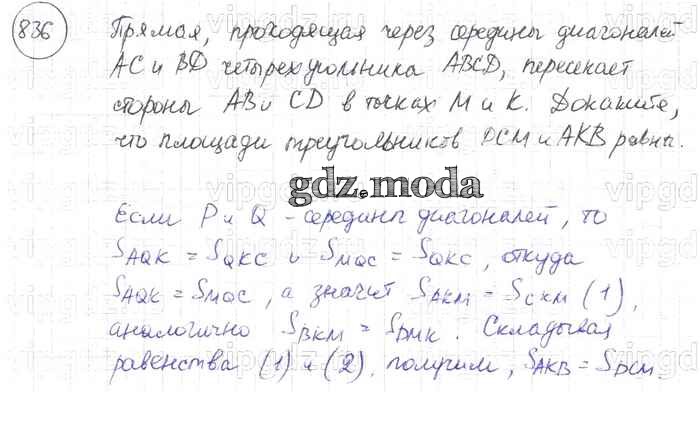 836
Прямая, проходящая через середины диагоналей
AC и BD четырехугольника ABCD, пересекает
стороны AB и CD в точках M и K. Докажите,
что площади треугольников DCM и AKB равны.
gdz.moda
Если P и Q - середины диагоналей, то
S AQK = S QKC и S MQC = S QKC, откуда
S AQK = S MQC, а значит S AKM = S CKM (1),
аналогично S BKM = S DMK. Складывая
равенства (1) и (2), получим, S AKB = S DCM